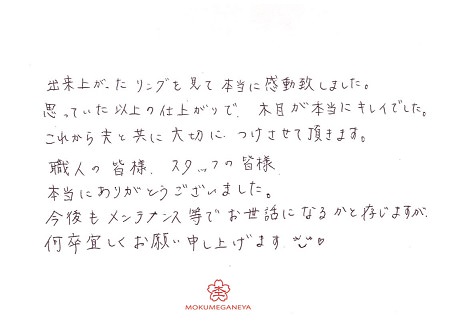 出来上がったリングを見て本当に感動致しました。
思っていた以上の仕上がりで、木目が本当にキレイでした。
これから夫と共に大切に、つけさせて頂きます。
職人の皆様、スタッフの皆様、
本当にありがとうございました。
今後もメンテナンス等でお世話になるかと存じますが、
何卒宜しくお願い申し上げます
MOKUMEGANEYA